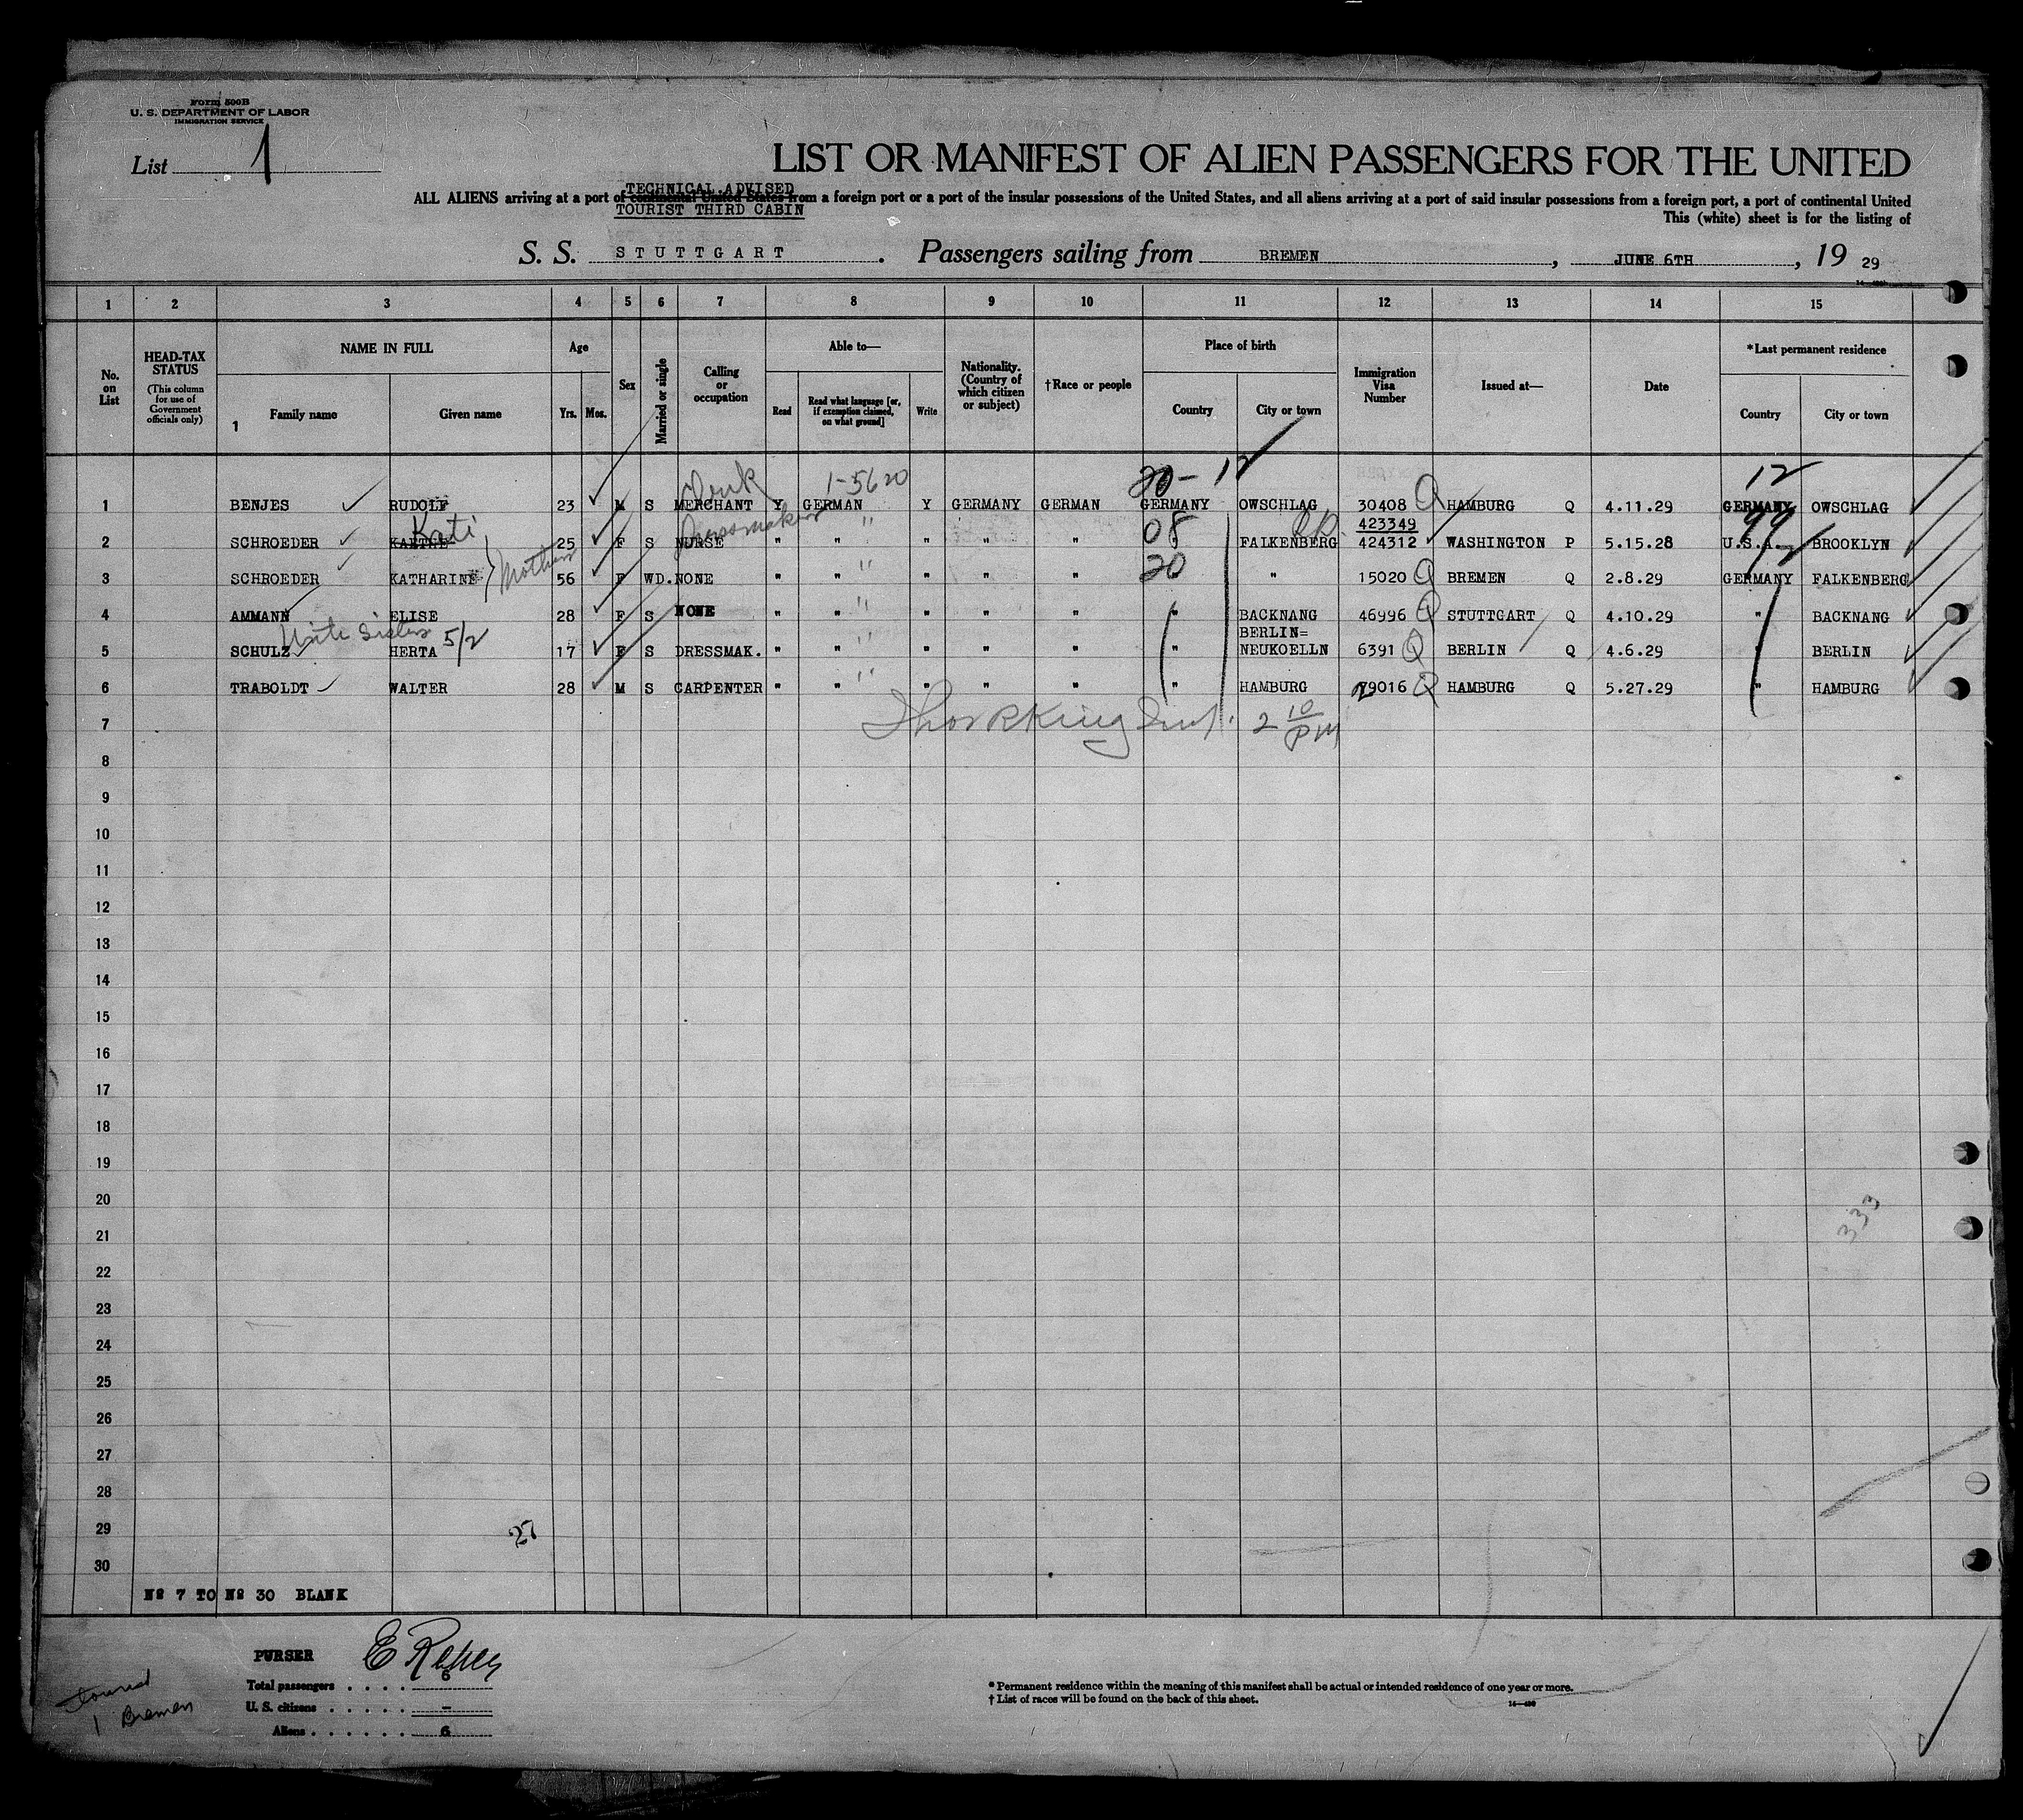 Form 500B
U. S. DEPARTMENT OF LABOR
IMMIGRATION SERVICE
List 1
LIST OR MANIFEST OF ALIEN PASSENGERS FOR THE UNITED
TECHNICAL ADVISED
ALL ALIENS arriving at a port of continental United States from a foreign port or a port of the insular possessions of the United States, and all aliens arriving at a port of said insular possessions from a foreign port, a port of continental United
TOURIST THIRD CABIN
This (white) sheet is for the listing of
S. S. STUTTGART . Passengers sailing from BREMEN , JUNE 6TH , 19 29
1 2 3 4 5 6 7 8 9 10 11 12 13 14 15
No. on List
HEAD-TAX STATUS
(This column for use of Government officials only)
NAME IN FULL
1 Family name
Given name
Age
Yrs. Mos.
Sex
Married or single
Calling or occupation
Able to—
Read
Read what language [or, if exemption claimed, on what ground]
Write
Nationality. (Country of which citizen or subject)
†Race or people
Place of birth
Country
City or town
Immigration Visa Number
Issued at—
Date
*Last permanent residence
Country
City or town
Clerk 1-5620 20 - 12 12
1 BENJES RUDOLF 23 M S MERCHANT Y GERMAN Y GERMANY GERMAN GERMANY OWSCHLAG 30408 Q HAMBURG Q 4.11.29 GERMANY OWSCHLAG
Kati Dressmaker " 08 423349 99
2 SCHROEDER KAETHE 25 F S NURSE " " " " " FALKENBERG 424312 WASHINGTON P 5.15.28 U.S.A. BROOKLYN
Mother " 20
3 SCHROEDER KATHARINE 56 F WD. NONE " " " " " " 15020 Q BREMEN Q 2.8.29 GERMANY FALKENBERG
4 AMMANN ELISE 28 F S NONE " " " " " " BACKNANG 46996 Q STUTTGART Q 4.10.29 " BACKNANG
Sister 5/2 BERLIN=
5 SCHULZ HERTA 17 F S DRESSMAK. " " " " " " NEUKOELLN 6391 Q BERLIN Q 4.6.29 " BERLIN
6 TRABOLDT WALTER 28 M S CARPENTER " " " " " " HAMBURG 79016 Q HAMBURG Q 5.27.29 " HAMBURG
7 King 2 10 PM
8
9
10
11
12
13
14
15
16
17
18
19
20
333
21
22
23
24
25
26
27
28
29 27
30
Nº 7 TO Nº 30 BLANK
PURSER
Total passengers . . . . 6
U. S. citizens . . . . . -
Aliens . . . . . . 6
tourist
1 Bremen
* Permanent residence within the meaning of this manifest shall be actual or intended residence of one year or more.
† List of races will be found on the back of this sheet.